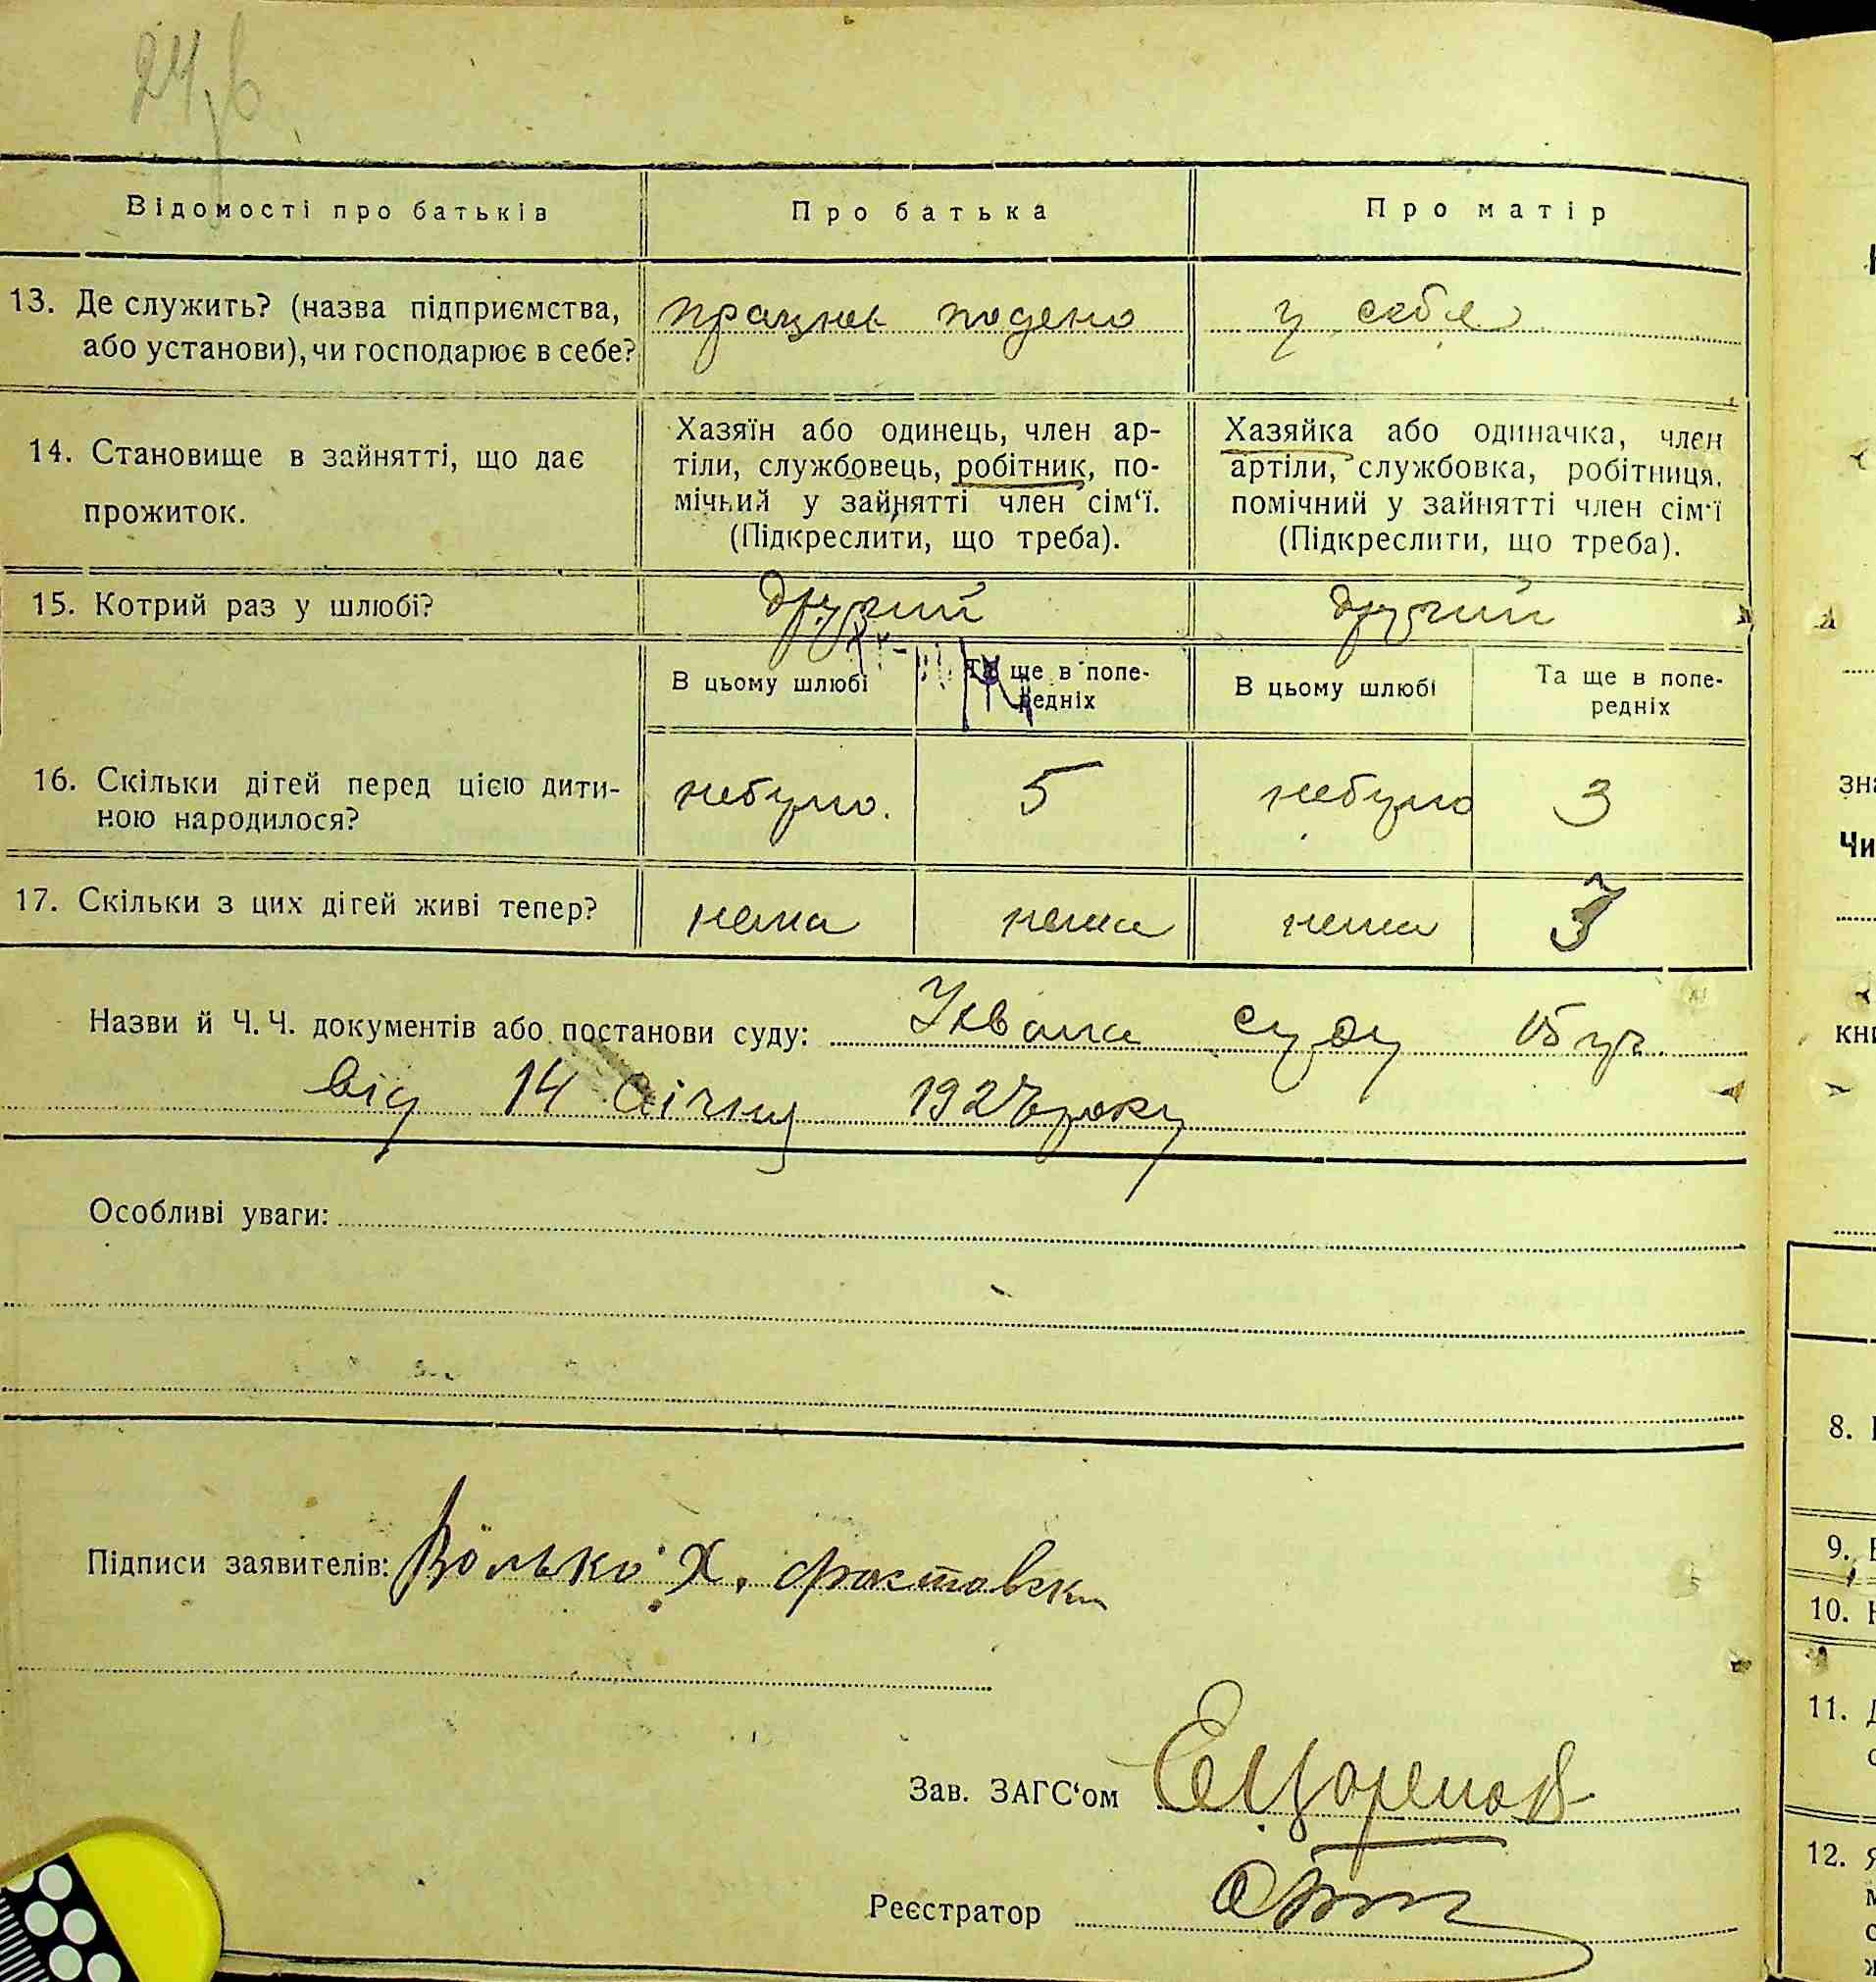 Відомості про батьків	Про батька	Про матір
13. Де служить? (назва підприємства,	працює подено	у себя
або установи), чи господарює в себе?
Хазяїн або одинець, член ар-	Хазяйка або одиначка, член
14. Становище в зайнятті, що дає	тіли, службовець, робітник, по-	артіли, службовка, робітниця,
прожиток.	мічний у зайнятті член сім'ї.	помічний у зайнятті член сім'ї
(Підкреслити, що треба).	(Підкреслити, що треба).
15. Котрий раз у шлюбі?	другий	другий
В цьому шлюбі	Та ще в попе-	В цьому шлюбі	Та ще в попе-
редніх	редніх
16. Скільки дітей перед цією дити-	небуло.	5	небуло	3
ною народилося?
17. Скільки з цих дітей живі тепер?	нема	нема	нема	3
Назви й Ч.Ч. документів або постанови суду: суду
від 14 Січня 1927 року
Особливі уваги:
Підписи заявителів: Волько Х. Фастовск
Зав. ЗАГС'ом
Реєстратор
зна
Чи
кни
8.
9.
10.
11.
12.